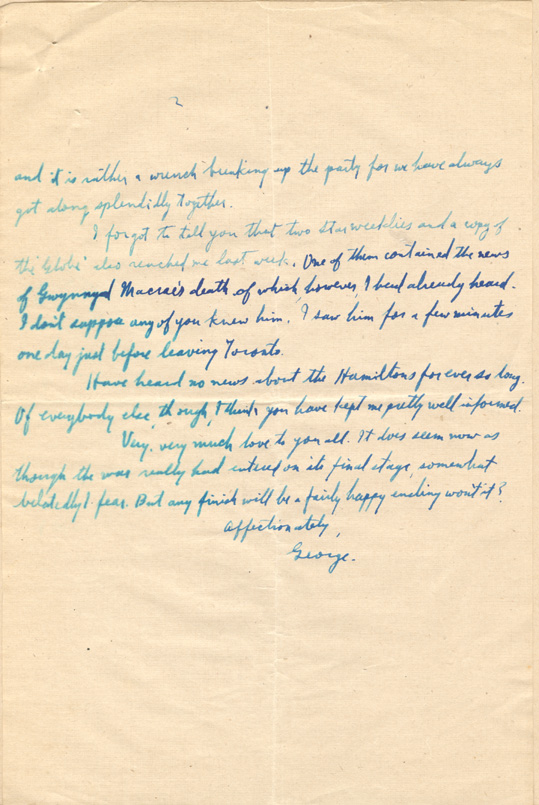 2
and it is rather a wrench breaking up the party for we have always
got along splendidly together.
I forgot to tell you that two star weeklies and a copy of
the 'Globe' also reached me last week. One of them contained the news
of Gwynnyd Macrae's death of which, however, I had already heard.
I don't suppose any of you knew him. I saw him for a few minutes
one day just before leaving Toronto.
Have heard no news about the Hamiltons for ever so long.
Of everybody else, though, I think you have kept me pretty well informed.
Very, very much love to you all. It does seem now as
though the war really had entered on its final stage, somewhat
belatedly I fear. But any finish will be a fairly happy ending won't it?
Affectionately,
George.